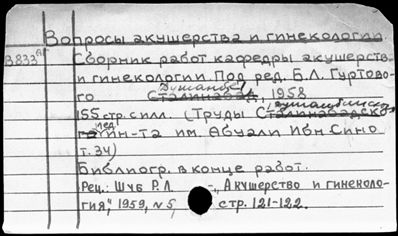 Вопросы акушерства и гинекологии.
В833а Сборник работ кафедры акушерств.
и гинекологии Под ред. Б.Л. Гуртово-
Душанбе
го Сталинабад, 1958
Душанбинско
155 стр. с илл. (Труды Сталинабадско-
мед.
го ин-та им. Абуали Ибн Сино
т. 34)
Библиогр. в конце работ.
Рец.: Шуб Р.Л. -„Акушерство и гинеколо-
гия", 1959, №5, стр. 121-122.